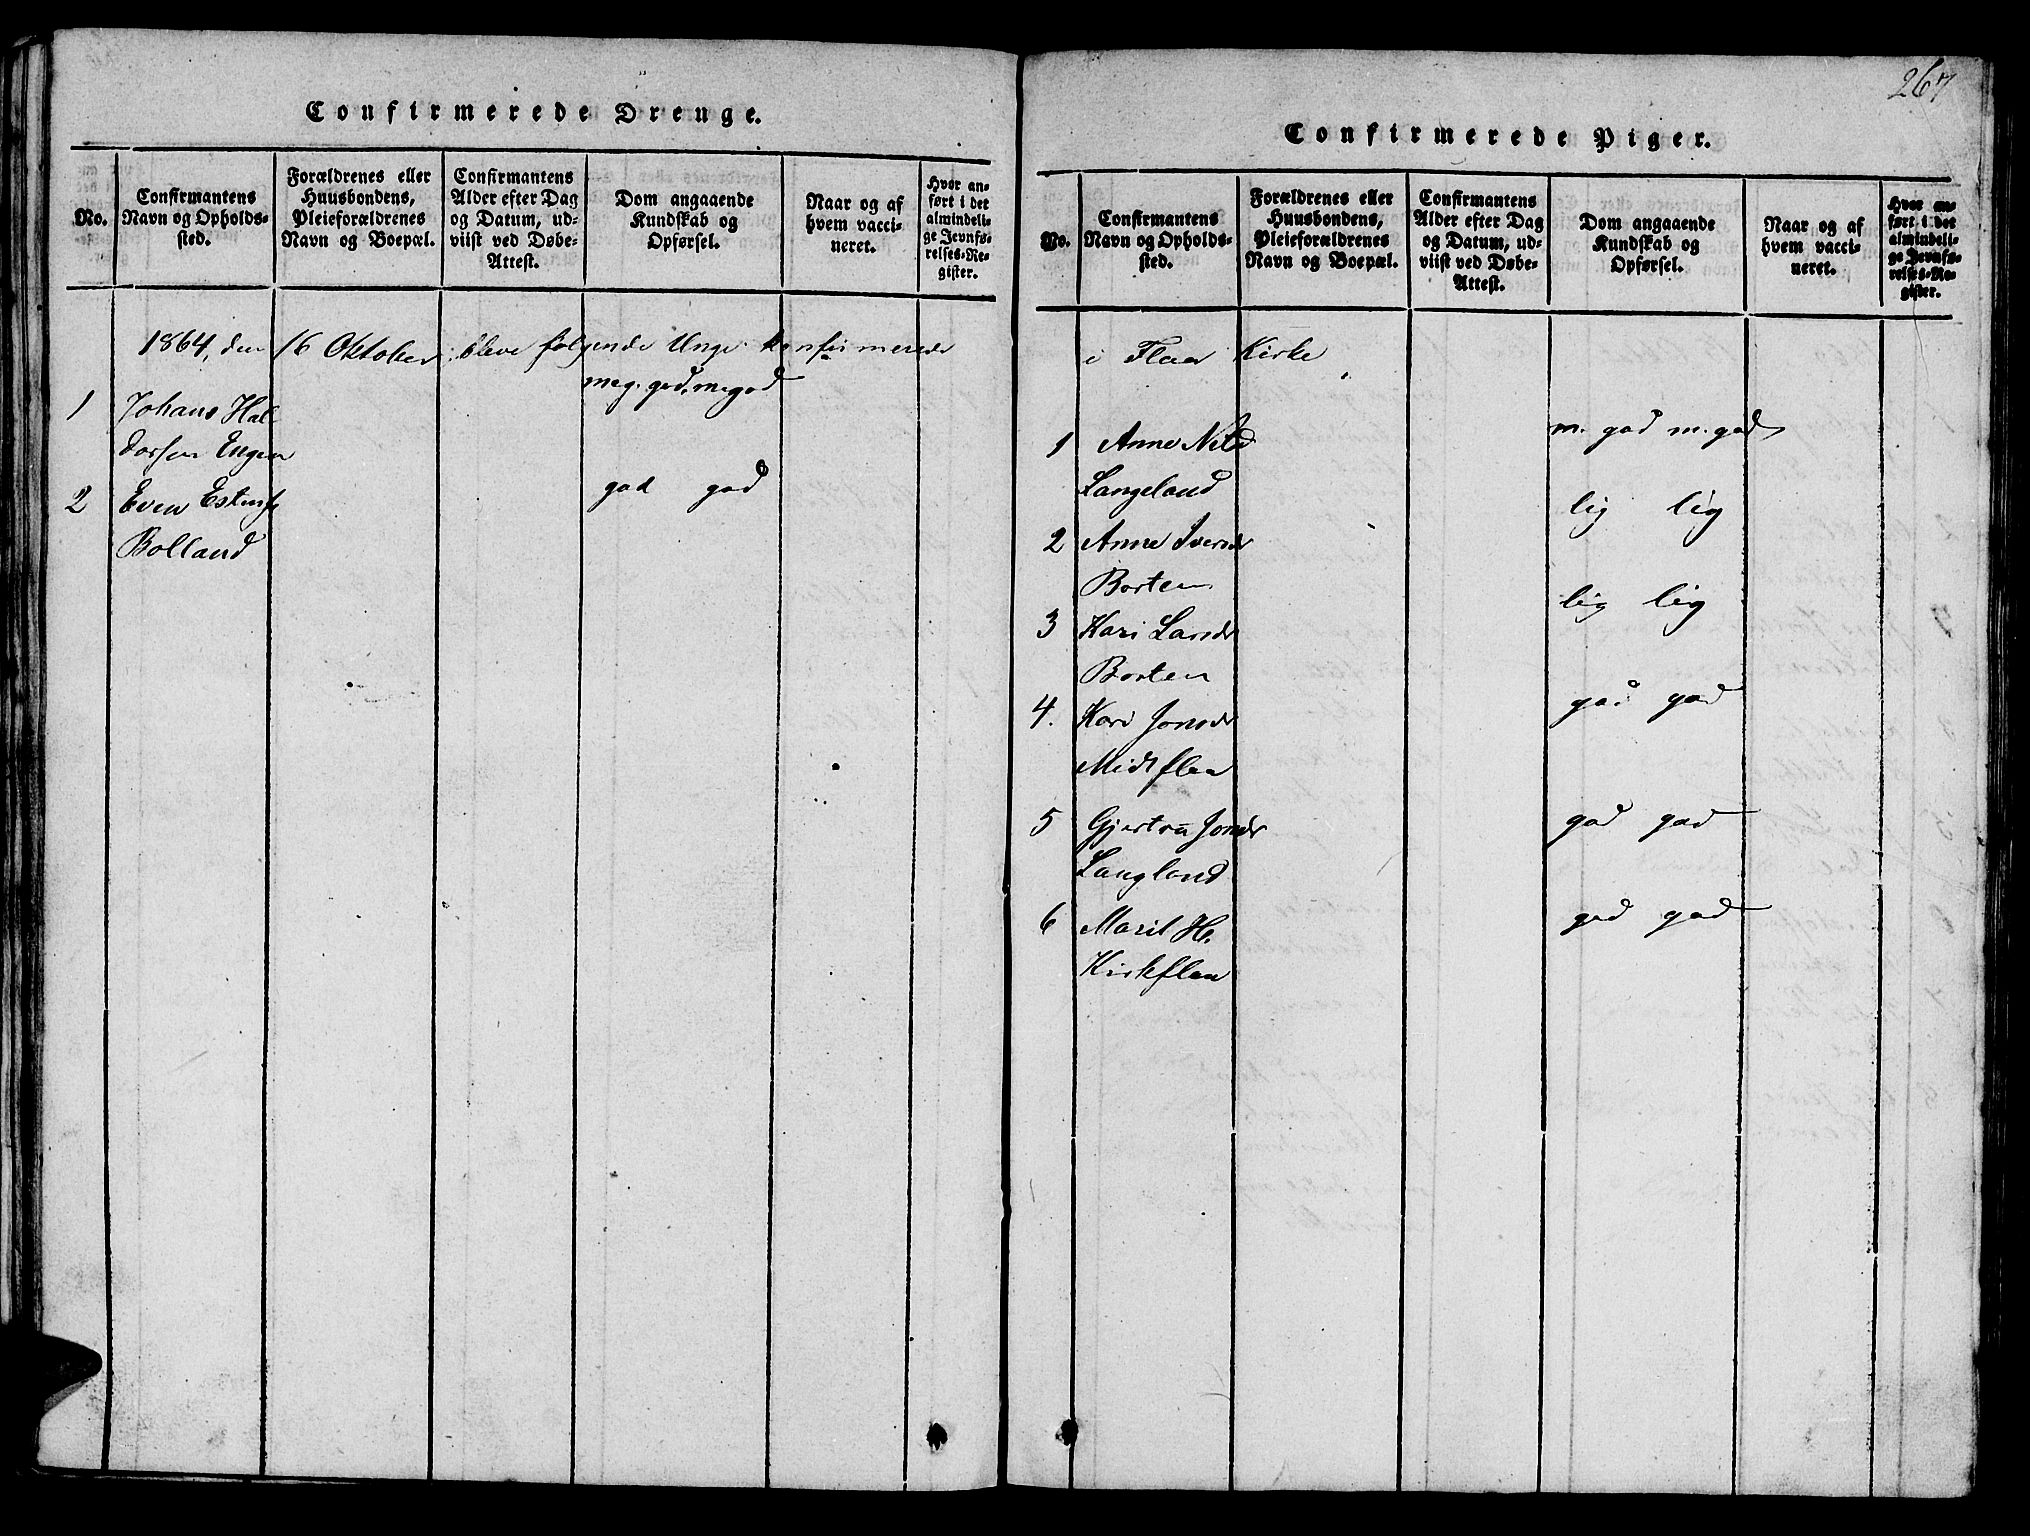 Confirmerede Drenge.
No.
Confirmantens
Navn og Opholds-
sted.
Forældrenes eller
Huusbondens,
Pleieforældrenes
Navn og Boepæl.
Confirmantens
Alder efter Dag
og Datum, ud-
viist ved Døbe-
Attest.
Dom angaaende
Kundskab og
Opførsel.
Naar og af
hvem vacci-
neret.
Hvor an-
ført i det
almindeli-
ge Jevnfø-
relses-Re-
gister.
1864, den 16 Oktober bleve følgende Unge konfirmerede
1 Johans Hal- meg. god, m god
dorsen Engen
2 Even Estens. god god
Bolland
267
Confirmerede Piger.
No.
Confirmantens
Navn og Opholds-
sted.
Forældrenes eller
Huusbondens,
Pleieforældrenes
Navn og Boepæl.
Confirmantens
Alder efter Dag
og Datum, ud-
viist ved Døbe-
Attest.
Dom angaaende
Kundskab og
Opførsel.
Naar og af
hvem vacci-
neret.
Hvor an-
ført i det
almindeli-
ge Jevnfø-
relses-Re-
gister.
i Flaa Kirke
1 Anne Nilsd m. god m. god
Langeland
2 Anne Iversdr lig lig
Borten
3 Kari Larsdr lig lig
Borten
4. Kari Jonsdr god god
Midtflaa
5 Gjertru Jonsdr god god
Langland
6 Marit H. god god
Kirkflaa